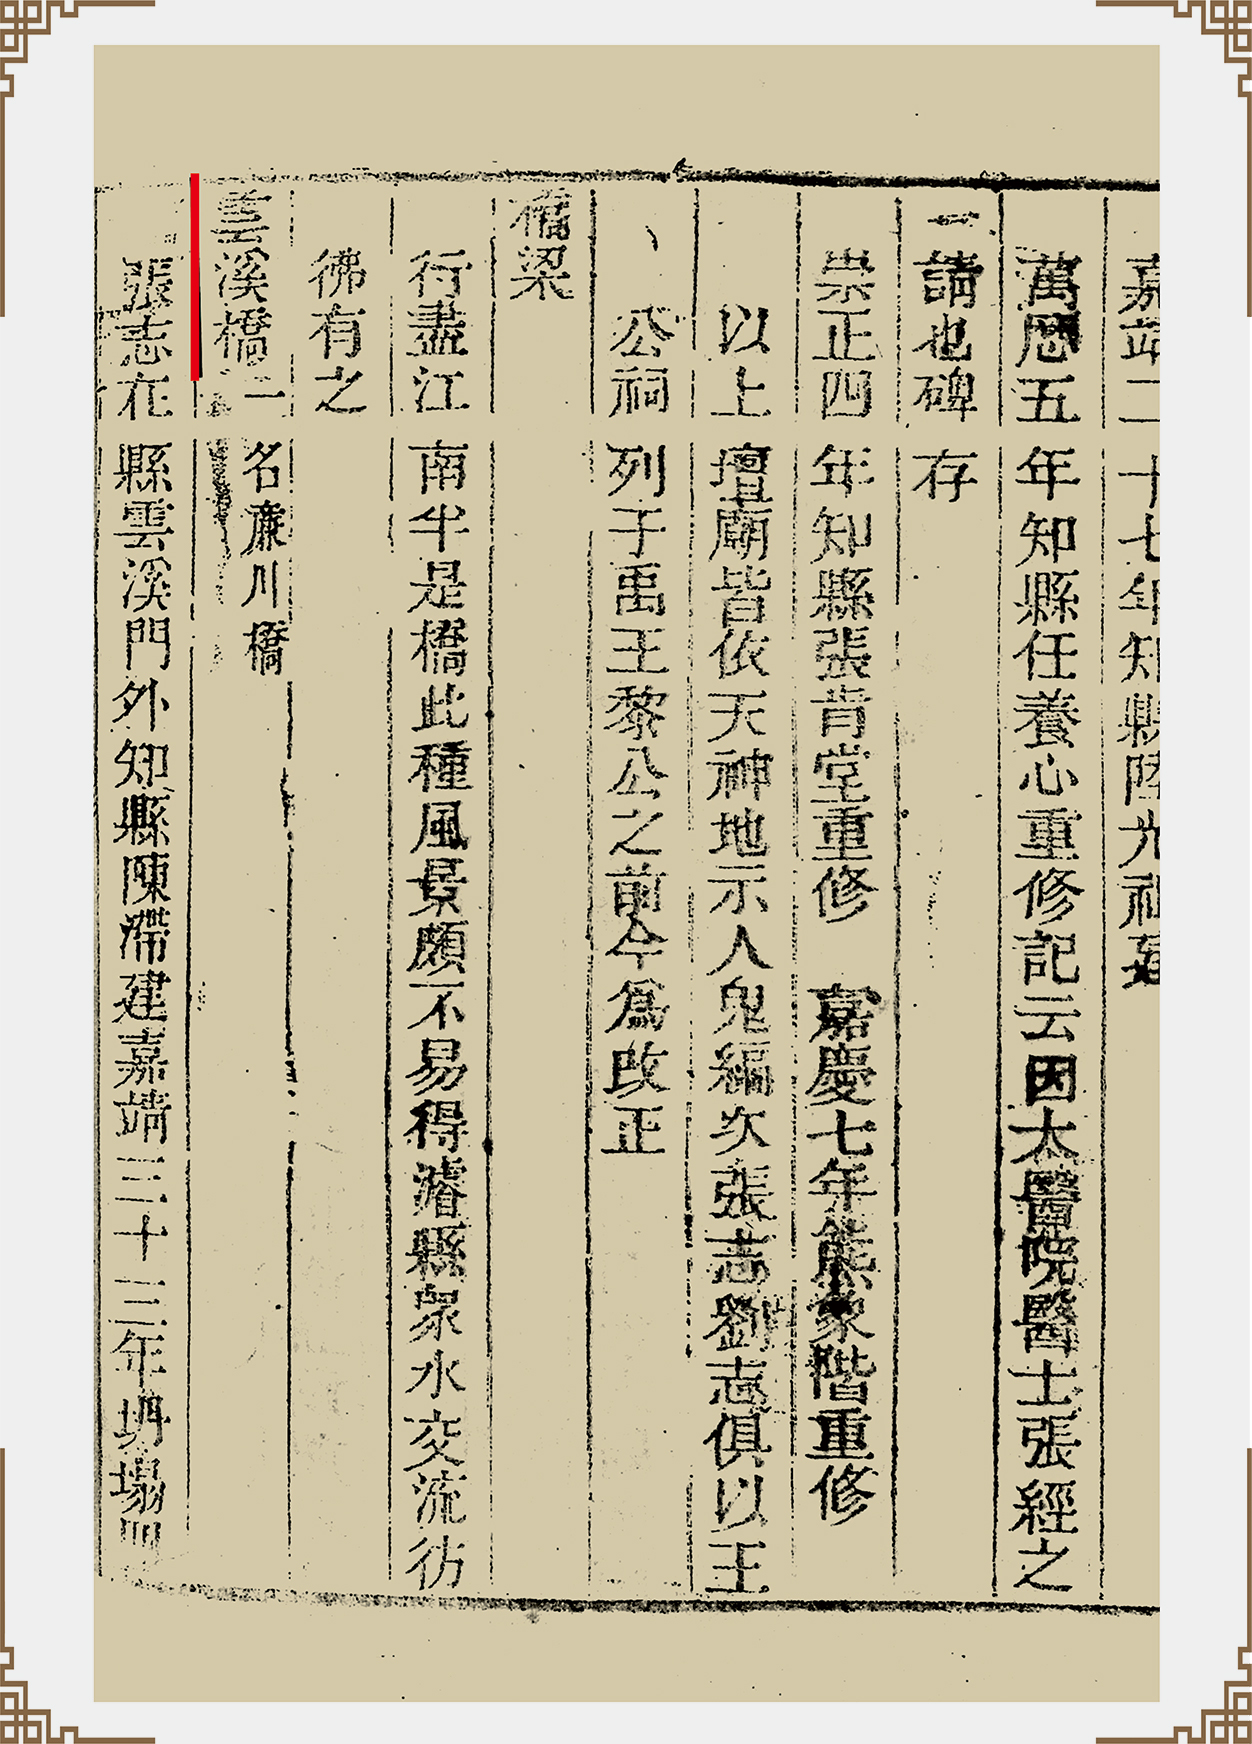 嘉靖二十七年知縣陸光祖建
萬曆五年知縣任養心重修記云因太醫院醫士張經之
一請也碑存
崇正四年知縣張肯堂重修　嘉慶七年熊象階重修
以上壇廟皆依天神地示人鬼編次張志劉志俱以王
公祠列于禹王黎公之前今為改正
橋梁
行盡江南半是橋此種風景頗不易得濬縣衆水交流彷
彿有之
雲溪橋一名廉川橋
張志在縣雲溪門外知縣陳滯建嘉靖三十三年坍塌